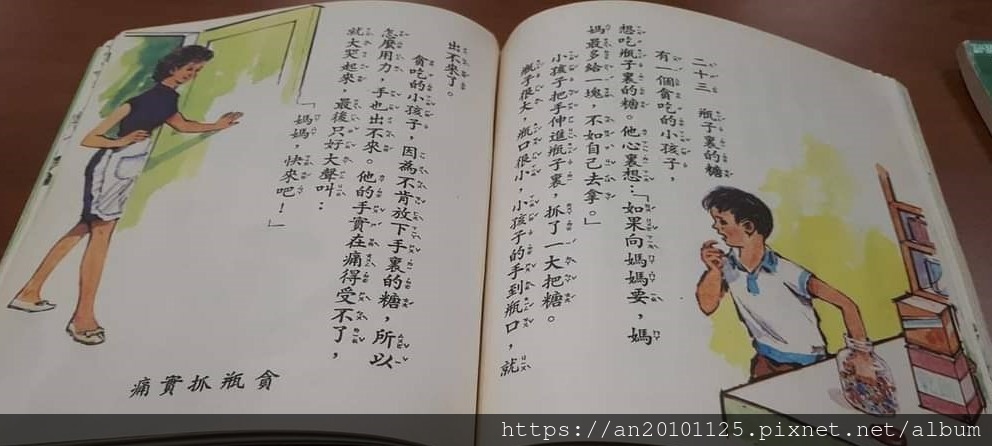 二十三 瓶子裏的糖
有一個貪吃的小孩子，
想吃瓶子裏的糖。他心裏想：「如果向媽媽要，媽
媽最多給一塊，不如自己去拿。」
小孩子把手伸進瓶子裏，抓了一大把糖。
瓶子很大，瓶口很小，小孩子的手到瓶口，就
出不來了。
貪吃的小孩子，因為不肯放下手裏的糖，所以
怎麼用力，手也出不來。他的手實在痛得受不了，
就大哭起來，最後只好大聲叫：
「媽媽，快來吧！」
貪瓶抓實痛
https://an20101125.pixnet.net/album